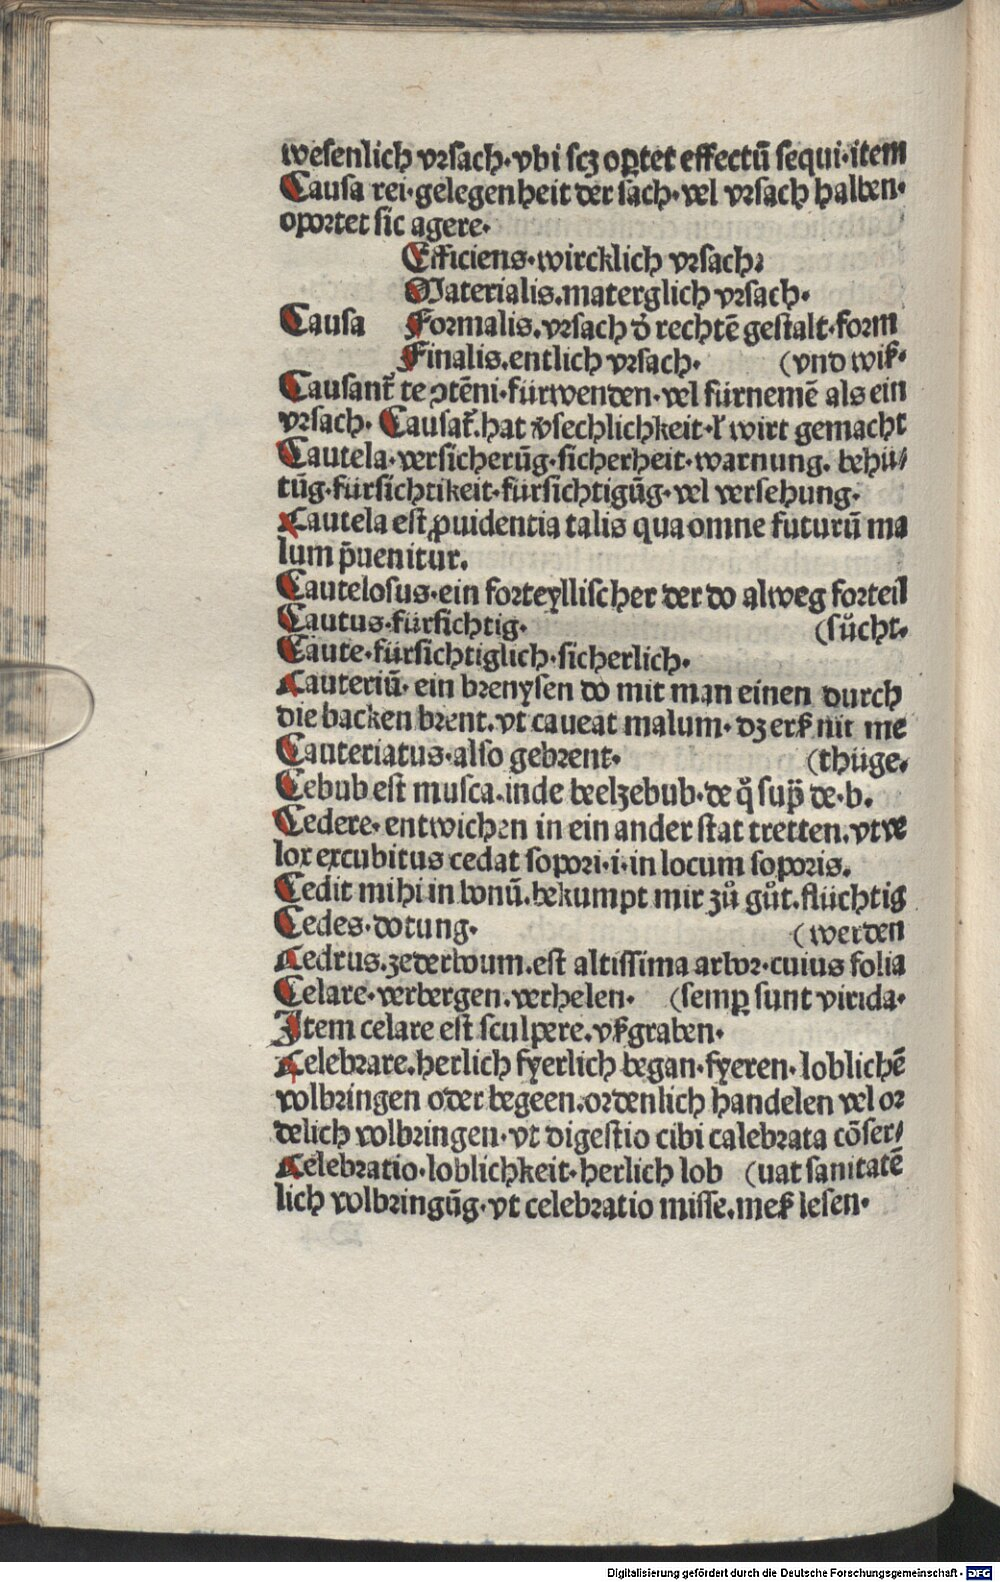 wesenlich vrsach·vbi scꝫ oꝑtet effectū sequi·item
Causa rei·gelegenheit der sach·vel vrsach halben·
oportet sic agere·
Efficiens·wircklich vrsach:
Materialis.materglich vrsach·
Causa Formalis.vrsach d̓ rechtē gestalt·form
Finalis.entlich vrsach· (vnd wiß·
Causant᷑ te ↄtēni·fürwenden·vel fürnemē als ein
vrsach. Causat᷑.hat v̓sechlichkeit·ł wirt gemacht
Cautela·versicherūg·sicherheit·warnung. behü/
tūg·fürsichtikeit·fürsichtigūg·vel versehung·
Cautela est ꝓuidentia talis qua omne futurū ma
lum p̄uenitur.
Cautelosus·ein forteyllischer der do alweg forteil
Cautus·fürsichtig· (sůcht·
Caute·fürsichtiglich·sicherlich·
Cauteriū· ein brenysen do mit man einen durch
die backen brent.vt caueat malum· dz erß nit me
Cauteriatus·also gebrent· (thüge.
Cebub est musca.inde beelzebub·de q̊ sup̈ de·b.
Cedere·entwichen in ein ander stat tretten.vt ve
lox excubitus cedat sopori·i·in locum soporis.
Cedit mihi in bonū.bekumpt mir zů gůt.flüchtig
Cedes·dotung· (werden
Cedrus.zederboum.est altissima arbor·cuius folia
Celare·verbergen.verhelen· (semꝑ sunt virida·
Item celare est sculpere.vßgraben·
Celebrare.herlich fyerlich began·fyeren·loblichē
volbringen oder begeen.ordenlich handelen vel or
delich volbringen·vt digestio cibi calebrata cōser/
Celebratio·loblichkeit·herlich lob (uat sanitatē
lich volbringūg·vt celebratio misse.meß lesen·
Digitalisierung gefördert durch die Deutsche Forschungsgemeinschaft - DFG